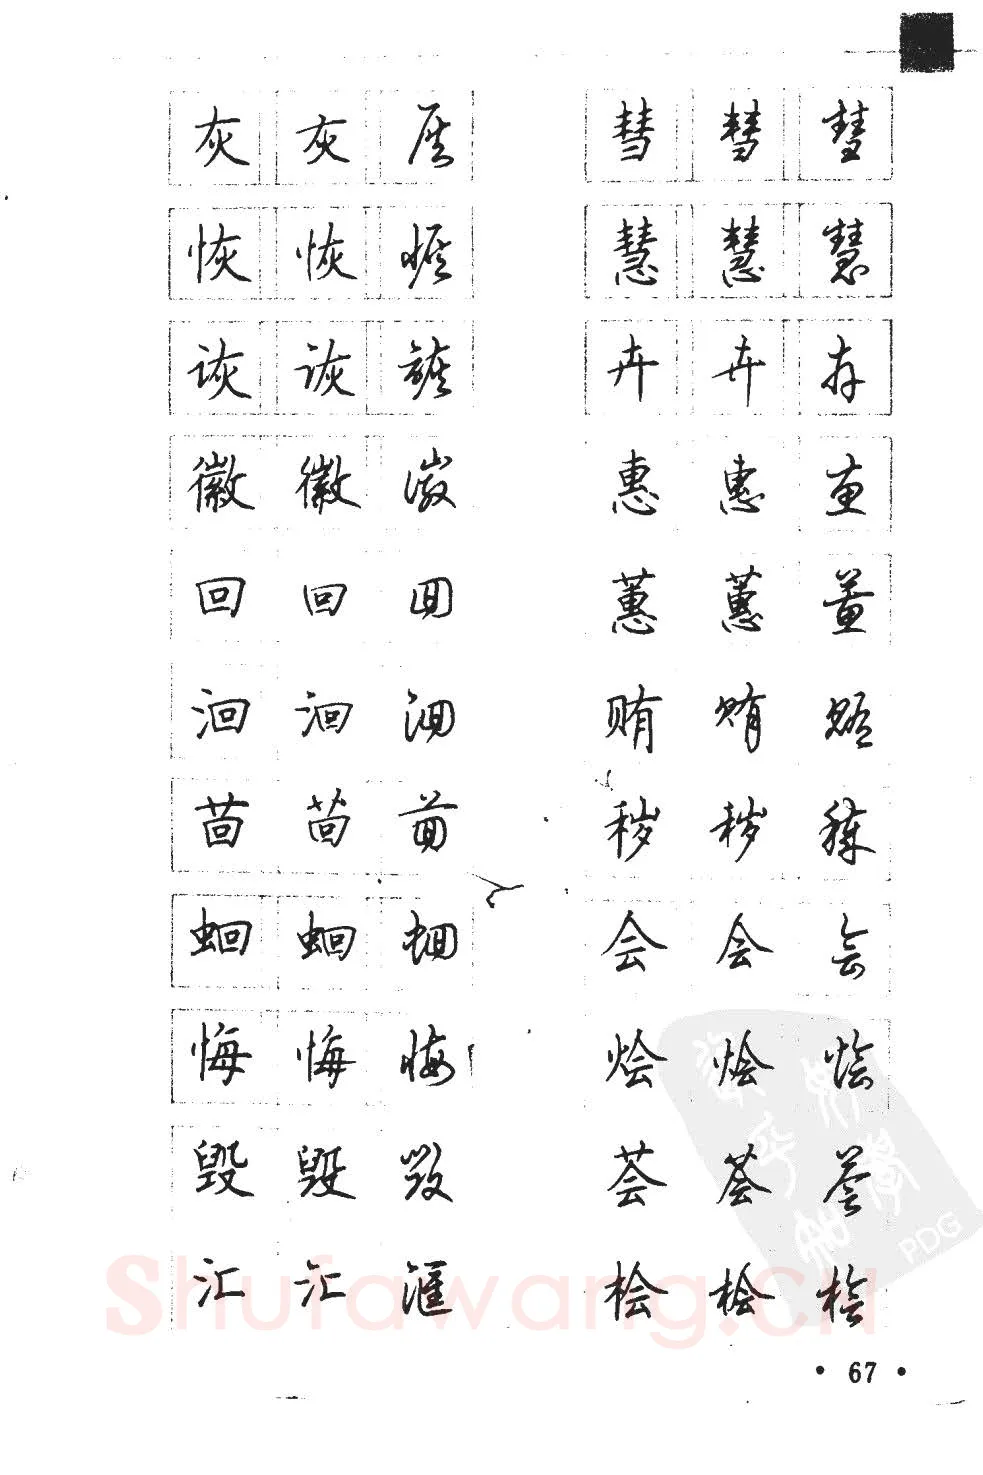 灰 灰 灰
恢 恢 恢
诙 诙 诙
徽 徽 徽
回 回 回
洄 洄 洄
茴 茴 茴
蛔 蛔 蛔
悔 悔 悔
毁 毁 毁
汇 汇 匯
彗 彗 彗
慧 慧 慧
卉 卉 卉
惠 惠 惠
蕙 蕙 蕙
贿 贿 贿
秽 秽 秽
会 会 会
烩 烩 烩
荟 荟 荟
桧 桧 桧
PDG
Shufawang.cn
• 67 •